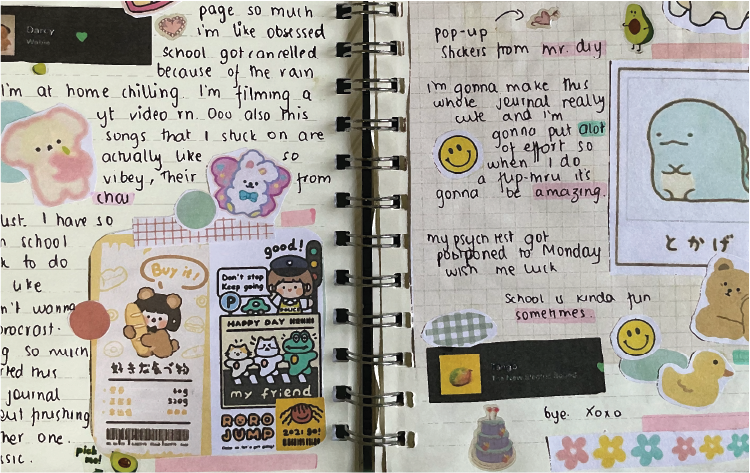 Darcy
page so much
i'm like obsessed
school got cancelled
because of the rain
I'm at home chilling. I'm filming a
yt video rn. Ooo also this
songs that I stuck on are
actually like so
vibey, their from
chou
just. I have so
school
to do
like
n't wanna
procrast.
so much
this
journal
but finishing
her one.
sic.
Buy it!
好きなたべ物
60g
320g
good!
Don't stop
Keep going
P
POLICE
HAPPY DAY
my friend
RORO
JUMP
2021 GO!
pick
me!
pop-up
stickers from mr. diy
i'm gonna make this
whole journal really
cute and i'm
gonna put alot
of effort so
when I do
a flip-thru it's
gonna be amazing.
とかげ
my psych test got
postponed to Monday
wish me luck
School is kinda fun
sometimes.
bye. xoxo